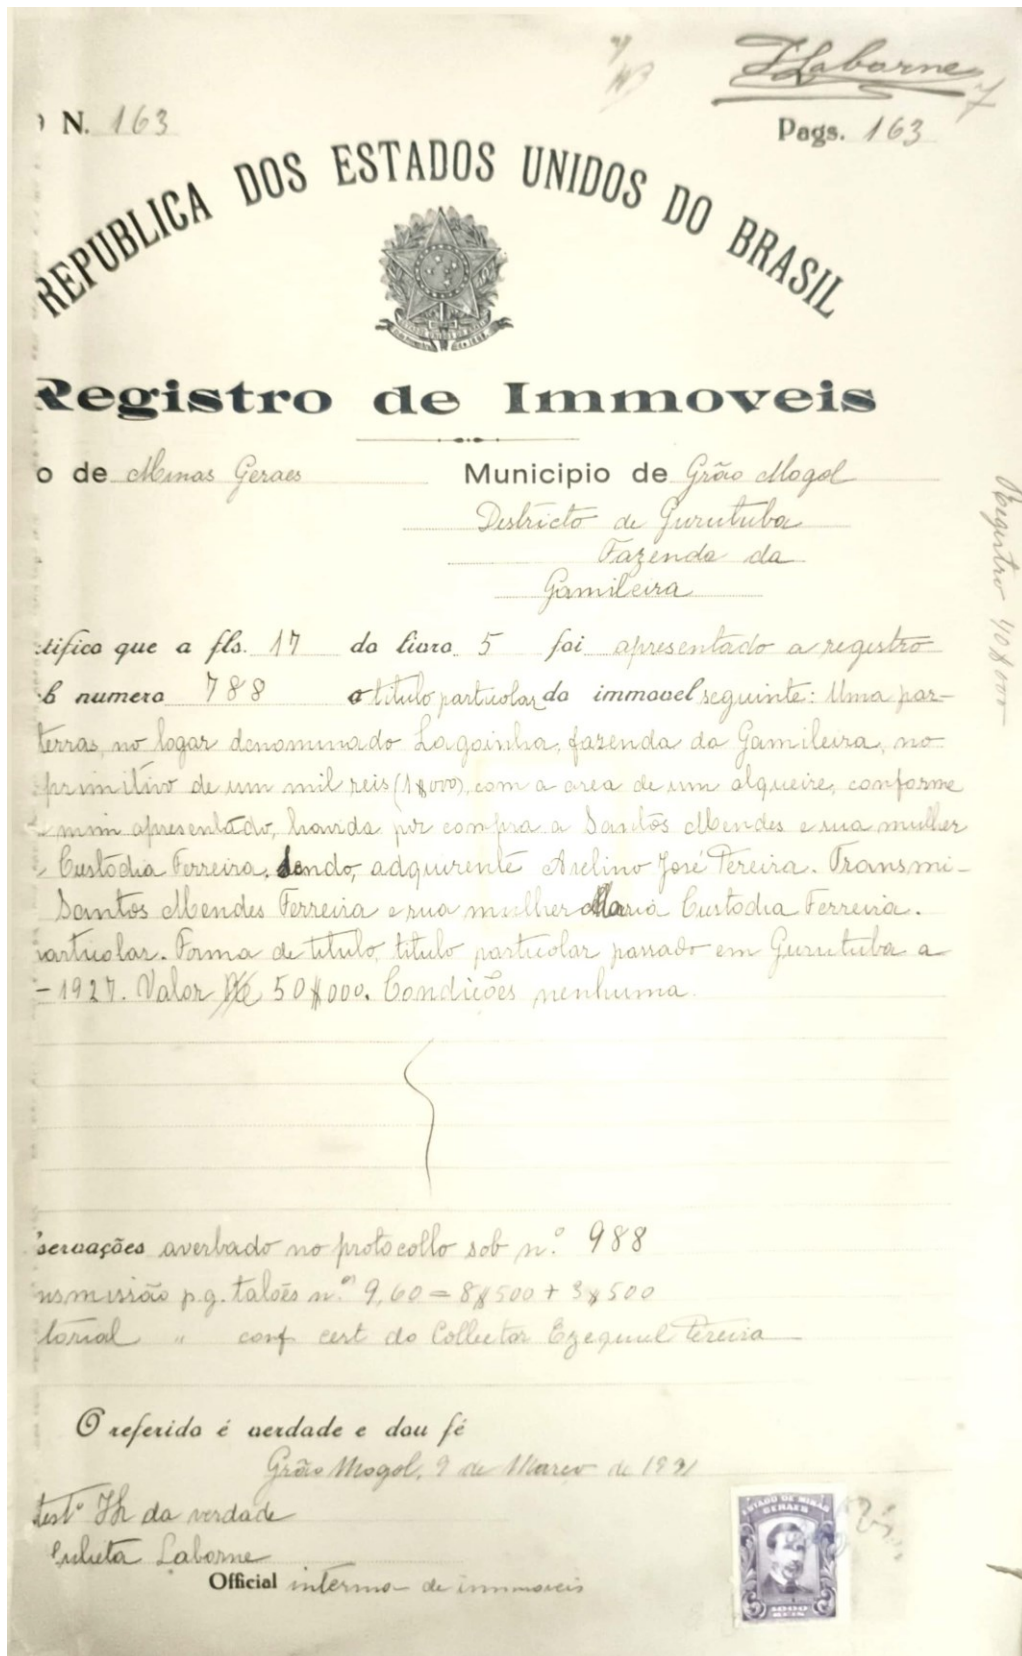 J Laborne
N. 163
Pags. 163
REPUBLICA DOS ESTADOS UNIDOS DO BRASIL
Registro de Immoveis
o de Minas Geraes Municipio de Grão Mogol
Districto de Gurutuba
Fazenda da
Gamileira
Registro 40$000
tifico que a fls. 17 do livro 5 foi apresentado a registro
b numero 788 o titulo particular do immovel seguinte: Uma par-
terras, no logar denominado Lagoinha, fazenda da Gamileira, no
primitivo de um mil reis (1$000), com a area de um alqueire, conforme
mim apresentado, havida por compra a Santos Mendes e sua mulher
Custodia Ferreira, sendo, adquirente Avelino José Pereira. Transmi-
Santos Mendes Ferreira e sua mulher Maria Custodia Ferreira.
articular. Forma de titulo, titulo particular passado em Gurutuba a
- 1927. Valor 50$000. Condicões nenhuma.
servações averbado no protocollo sob n.º 988
nsmissão p.g. talões n.os 9,60 = 8$500 + 3$500
torial " conf cert do Collector Ezequiel Pereira
O referido é verdade e dou fé
Grão Mogol, 9 de Março de 1931
test.º da verdade
Julieta Laborne
Official interina de immoveis
ESTADO DE MINAS
GERAES
1000
REIS